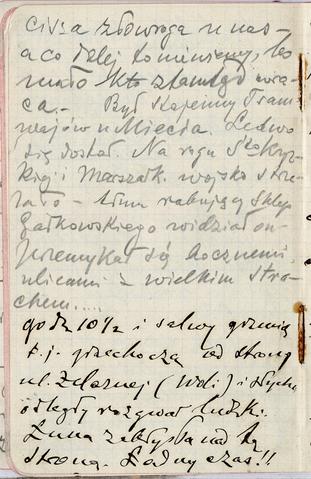 cisza złowroga u nas
a co dalej to nie wiemy, bo
mało kto stamtąd wra
ca. - Był Stajenny Tram
wajów u Miecia. Ledwo
się dostał. Na rogu Sto Krzy
skiej i Marszałk. wojsko strze
lało - tłum rabujący sklep
Gałkowskiego widział on.
Przemykał się bocznemi
ulicami z wielkim stra
chem.....
godz 10½ i salwy grzmią
t.j. przechodzą od strony
ul. Żelaznej (Woli) i słychać
odległy rozgwar ludzki.
Łuna zabłysła nad tą
stroną. Ładny czas!!